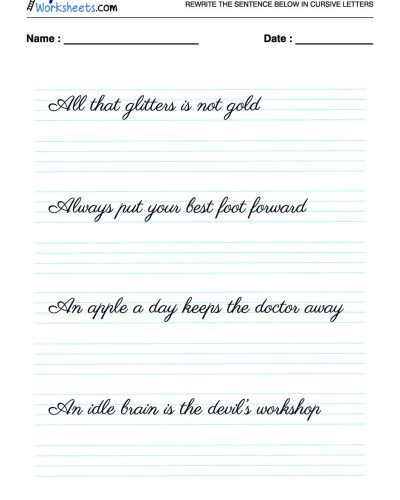 Worksheets.com
REWRITE THE SENTENCE BELOW IN CURSIVE LETTERS
Name : Date :
All that glitters is not gold
Always put your best foot forward
An apple a day keeps the doctor away
An idle brain is the devil's workshop